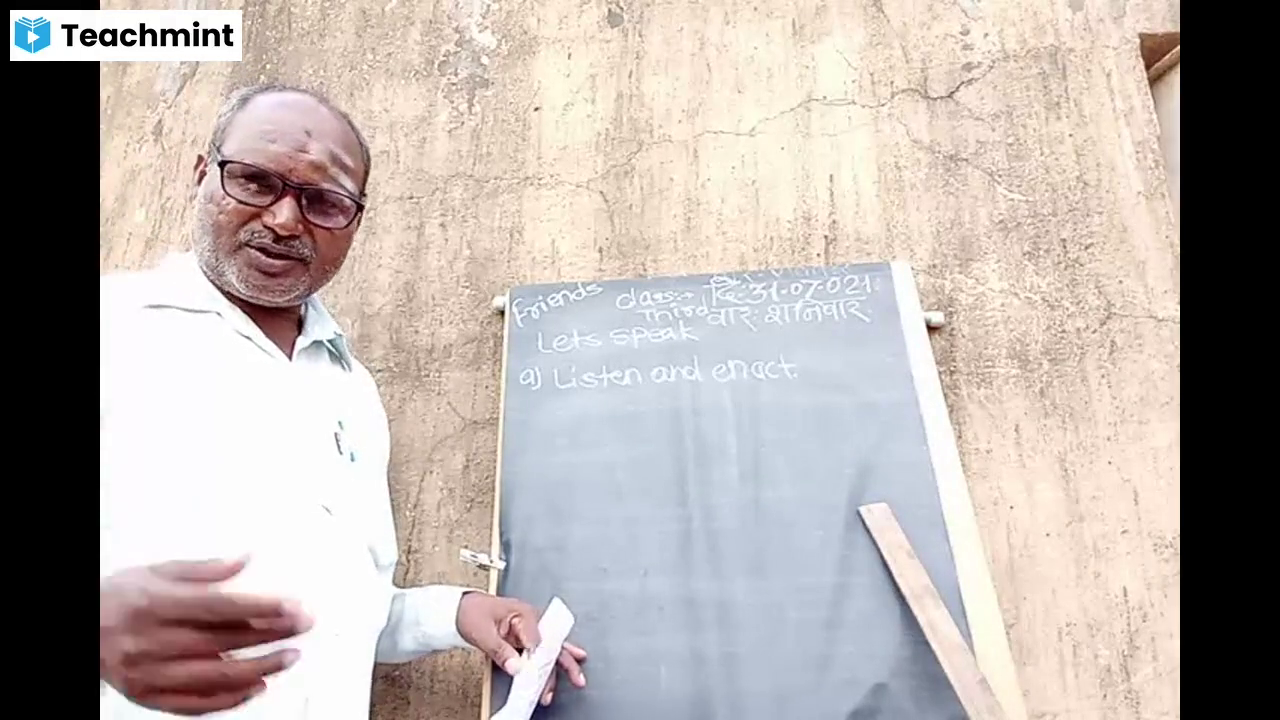 Teachmint
Friends class:- दि:-31.07.021
Third वार: शनिवार
Lets speak
a) Listen and enact.